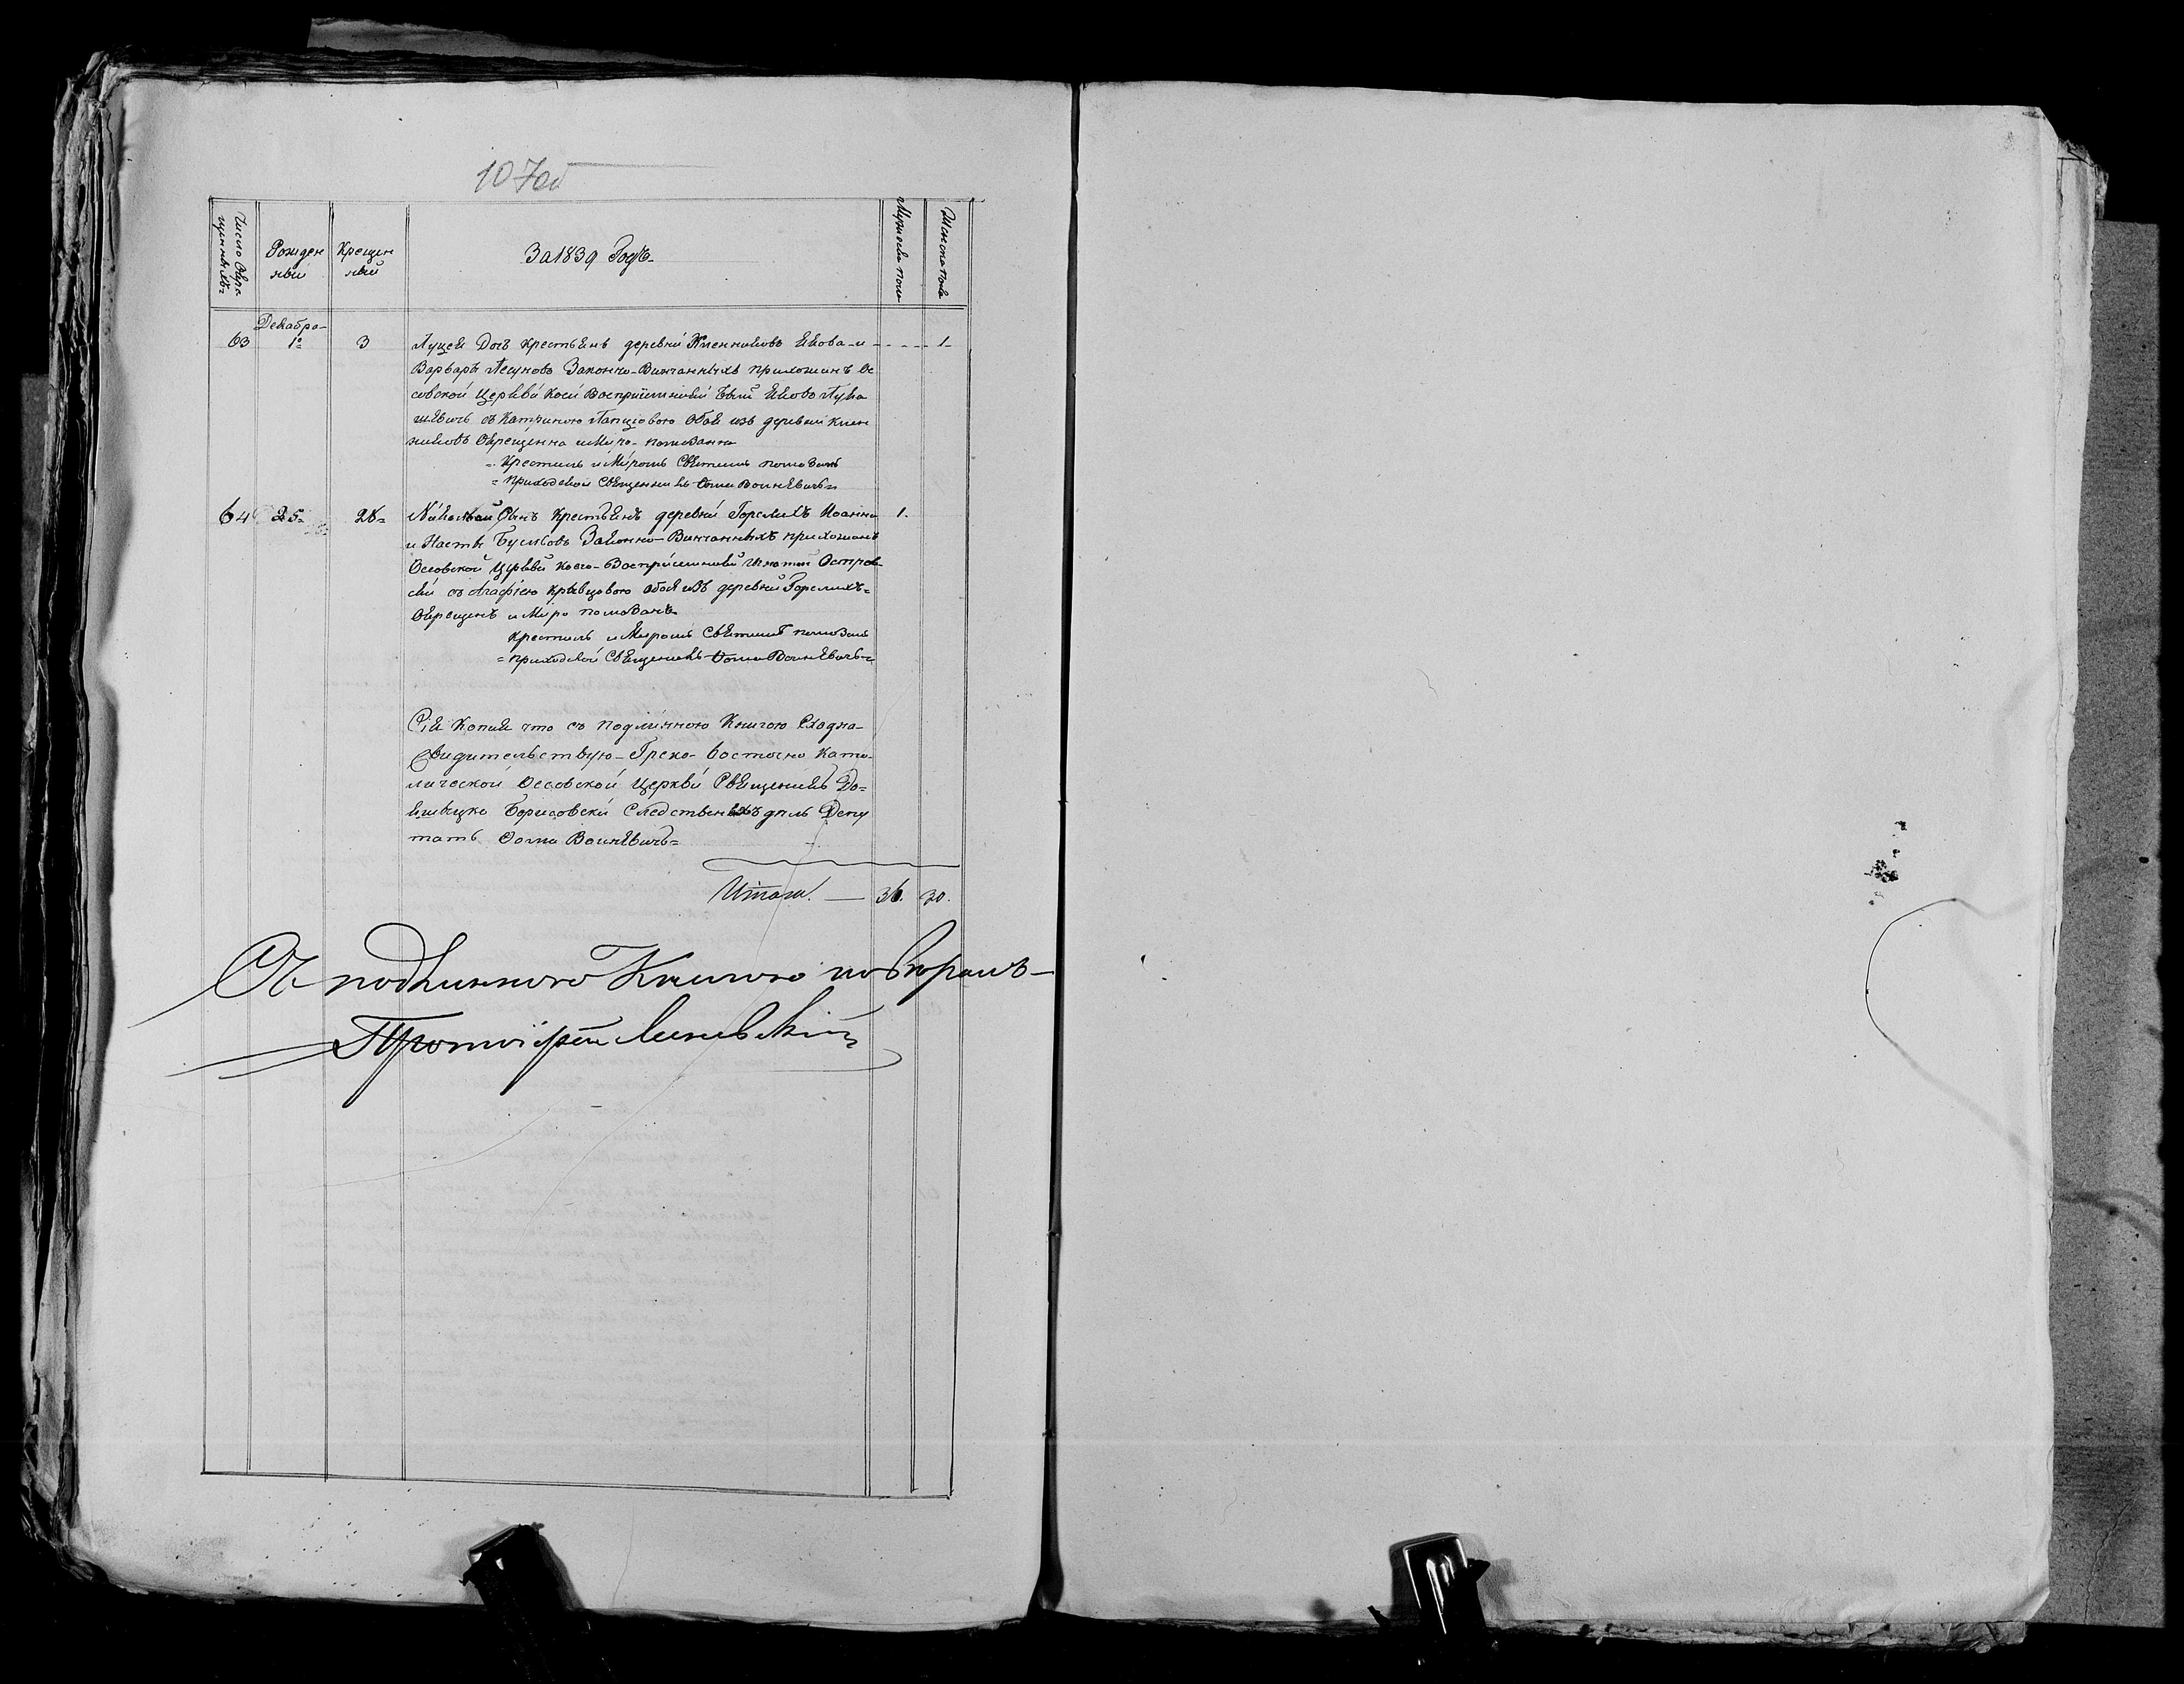 107об
Число Окре
щенныхъ
Рожден
ный
Крещен
ный
За 1839 Годъ
Мужеска пола
Женска пола
Декабря
63 1 3 Луцея Дочь Крестьянъ деревни Кленниковъ Якова и 1
Варвары Лесуновъ Законно-Винчанныхъ прихожанъ Ос
совской Церкви Коей Восприемники были Яковъ Лука
шевичь съ Катриною Лапцовою обоя изъ деревни Клен
никовъ Окрещенна и Миро-помазанна
Крестилъ и Миромъ Святымъ помазалъ
приходской Священникъ Фома Воиневичъ
64 25 28 Николай Сынъ Крестьянъ деревни Горелихъ Иоанна 1
и Насты Бумковъ Законно-Винчанныхъ прихожанъ
Оссовской Церкви Коего-Восприемники Игнатий Остров
ский съ Агафиею Кривцовою обоя изъ деревни Горелихъ
Окрещенъ и Миро помазанъ
Крестилъ и Миромъ Святымъ помазалъ
приходской Священникъ Фома Воиневичъ
Сия Копия что съ подлинною Книгою сходна
свидительствую Греко-Восточно Като
лической Оссовской Церкви Священникъ До
кшицко Борисовский Следственныхъ делъ Депу
татъ Фома Воиневичъ
Итого 36. 30.
Съ подлинною Книгою поверялъ
Протоіерей